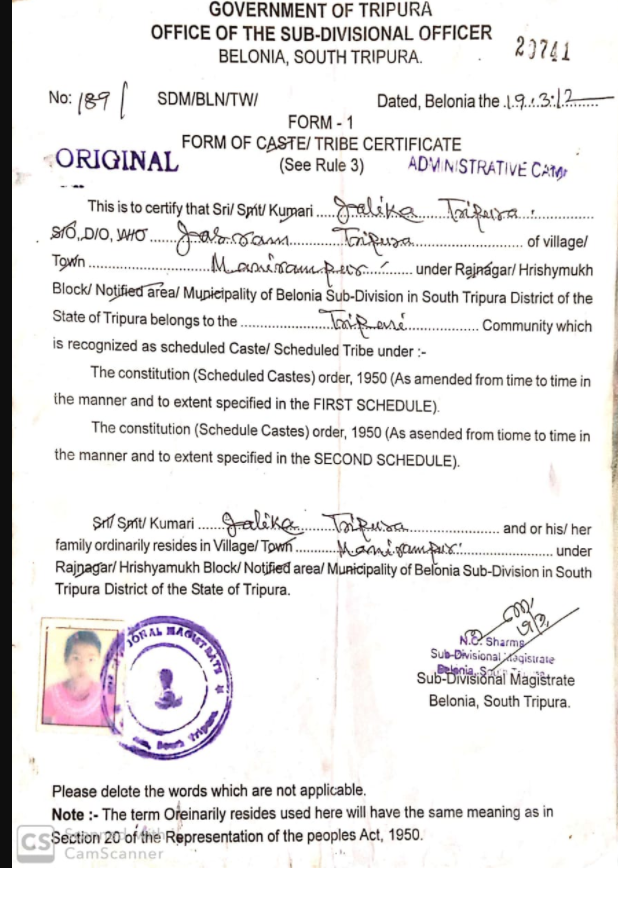 GOVERNMENT OF TRIPURA
OFFICE OF THE SUB-DIVISIONAL OFFICER
BELONIA, SOUTH TRIPURA.
20741
No: 189 / SDM/BLN/TW/ Dated, Belonia the .1.9..3.12.......
FORM - 1
FORM OF CASTE/ TRIBE CERTIFICATE
ORIGINAL (See Rule 3) ADMINISTRATIVE CAMP
This is to certify that Sri/ Smt/ Kumari .... Jalika Tripura ..............
S/O, D/O, W/O ...... Jassram Tripura ........................... of village/
Town ............................. Manirampur ........ under Rajnagar/ Hrishymukh
Block/ Notified area/ Municipality of Belonia Sub-Division in South Tripura District of the
State of Tripura belongs to the ..................... Tripuri ................... Community which
is recognized as scheduled Caste/ Scheduled Tribe under :-
The constitution (Scheduled Castes) order, 1950 (As amended from time to time in
the manner and to extent specified in the FIRST SCHEDULE).
The constitution (Schedule Castes) order, 1950 (As asended from tiome to time in
the manner and to extent specified in the SECOND SCHEDULE).
Sri/ Smt/ Kumari ...... Jalika Tripura ........................ and or his/ her
family ordinarily resides in Village/ Town .......... Manirampur ........................ under
Rajnagar/ Hrishyamukh Block/ Notified area/ Municipality of Belonia Sub-Division in South
Tripura District of the State of Tripura.
N.C. Sharma
Sub-Divisional Magistrate
Belonia, South Tripura
Sub-Divisional Magistrate
Belonia, South Tripura.
Please delete the words which are not applicable.
Note :- The term Oreinarily resides used here will have the same meaning as in
Section 20 of the Representation of the peoples Act, 1950.
CS Scanned with
CamScanner